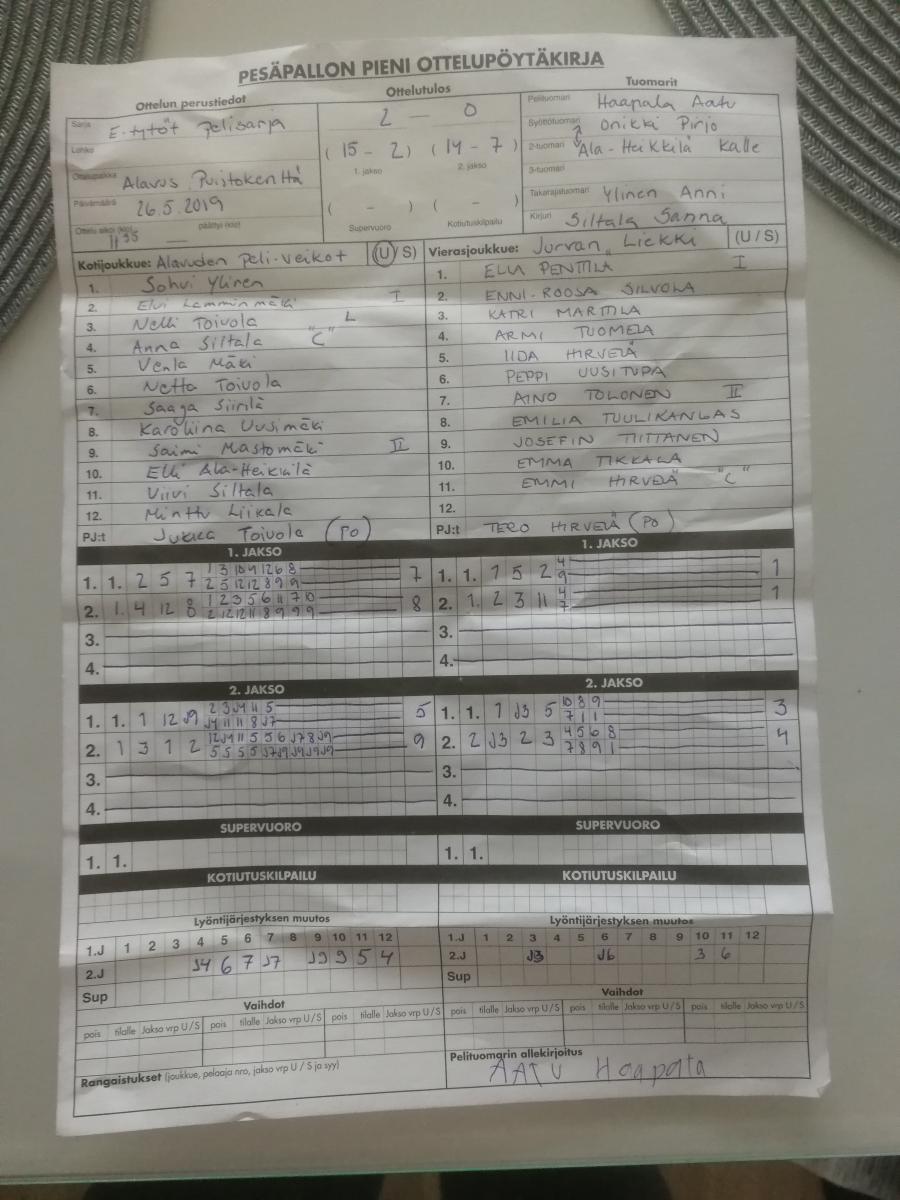 PESÄPALLON PIENI OTTELUPÖYTÄKIRJA
Ottelun perustiedot
Sarja E-tytöt Pelisarja
Lohko
Ottelupaikka Alavus Puistokenttä
Päivämäärä 26.5.2019
Ottelu alkoi (klo) 1135 — päättyi (klo)
Ottelutulos
2 — 0
(15 - 2) (14 - 7)
1. jakso 2. jakso
( - ) ( - )
Supervuoro Kotiutuskilpailu
Tuomarit
Pelituomari Haapala Aatu
Syöttötuomari Onikki Pirjo
2-tuomari Ala-Heikkilä Kalle
3-tuomari
Takarajatuomari Ylinen Anni
Kirjuri Siltala Sanna
Kotijoukkue: Alavuden Peli-Veikot (U/S)
1. Sohvi Ylinen
2. Elvi Lamminmäki I
3. Nelli Toivola L
4. Anna Siltala "C"
5. Venla Mäki
6. Netta Toivola
7. Saaga Siirilä
8. Karoliina Uusimäki
9. Saimi Mastomäki II
10. Elli Ala-Heikkilä
11. Viivi Siltala
12. Minttu Liikala
PJ:t Jukka Toivola (PO)
Vierasjoukkue: Jurvan Liekki (U/S)
1. ELLI PENTTILÄ I
2. ENNI-ROOSA SILVOLA
3. KATRI MARTTILA
4. ARMI TUOMELA
5. IIDA HIRVELÄ
6. PEPPI UUSITUPA
7. AINO TOLONEN II
8. EMILIA TUULIKANGAS
9. JOSEFIN TIITTANEN
10. EMMA TIKKALA
11. EMMI HIRVELÄ "C"
12.
PJ:t TERO HIRVELÄ (PO)
1. JAKSO
1. 1. 2 5 7 1 3 10 9 12 6 8 7
2 5 12 12 8 9 9
2. 1. 4 12 8 1 2 3 5 6 11 7 10 8
2 12 12 11 8 9 9 9
3.
4.
1. JAKSO
1. 1. 1 5 2 4 1
9
2. 1. 2 3 11 4 1
7
3.
4.
2. JAKSO
1. 1. 1 12 J9 2 3 J4 11 5 5
J4 11 11 8 J7
2. 1 3 1 2 12 J4 11 5 5 6 J7 8 J9 9
5 5 5 5 J7 J9 J9 J9 J9
3.
4.
2. JAKSO
1. 1. 1 J3 5 10 8 9 3
7 1 1
2. 2 J3 2 3 4 5 6 8 4
7 8 9 1
3.
4.
SUPERVUORO
1. 1.
SUPERVUORO
1. 1.
KOTIUTUSKILPAILU
KOTIUTUSKILPAILU
Lyöntijärjestyksen muutos
1.J 1 2 3 4 5 6 7 8 9 10 11 12
2.J J4 6 7 J7 J9 9 5 4
Sup
Lyöntijärjestyksen muutos
1.J 1 2 3 4 5 6 7 8 9 10 11 12
2.J J3 J6 3 6
Sup
Vaihdot
pois tilalle Jakso vrp U/S pois tilalle Jakso vrp U/S pois tilalle Jakso vrp U/S
Vaihdot
pois tilalle Jakso vrp U/S pois tilalle Jakso vrp U/S pois tilalle Jakso vrp U/S
Rangaistukset (joukkue, pelaaja nro, jakso vrp U/S ja syy)
Pelituomarin allekirjoitus
AATU Haapala